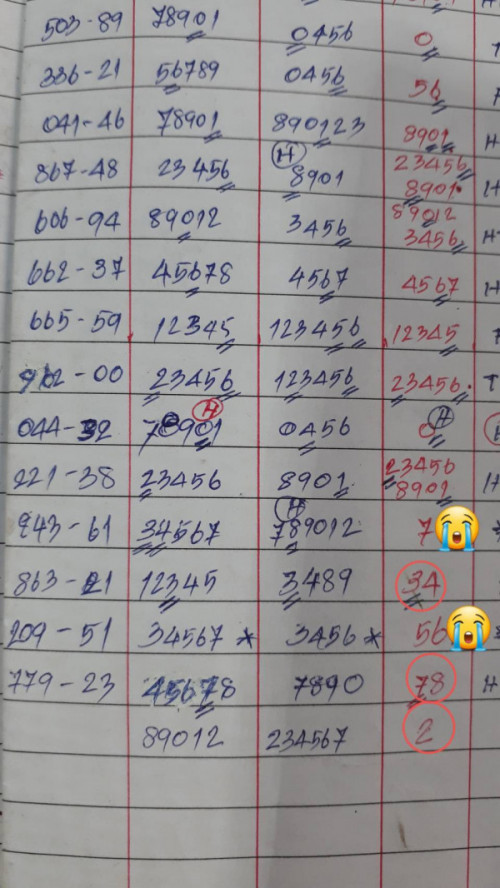 503-89 78901 0456 0
336-21 56789 0456 56
041-46 78901 890123 8901
H 23456
867-48 23456 8901 8901
89012
606-94 89012 3456 3456
662-37 45678 4567 4567 H
665-59 12345 123456 12345
912-00 23456 123456 23456 T
H H
044-32 78901 0456 0
23456
221-38 23456 8901 8901 H
H
943-61 34567 789012 7
863-21 12345 3489 34
209-51 34567 * 3456 * 56
779-23 45678 7890 78 H
89012 234567 2